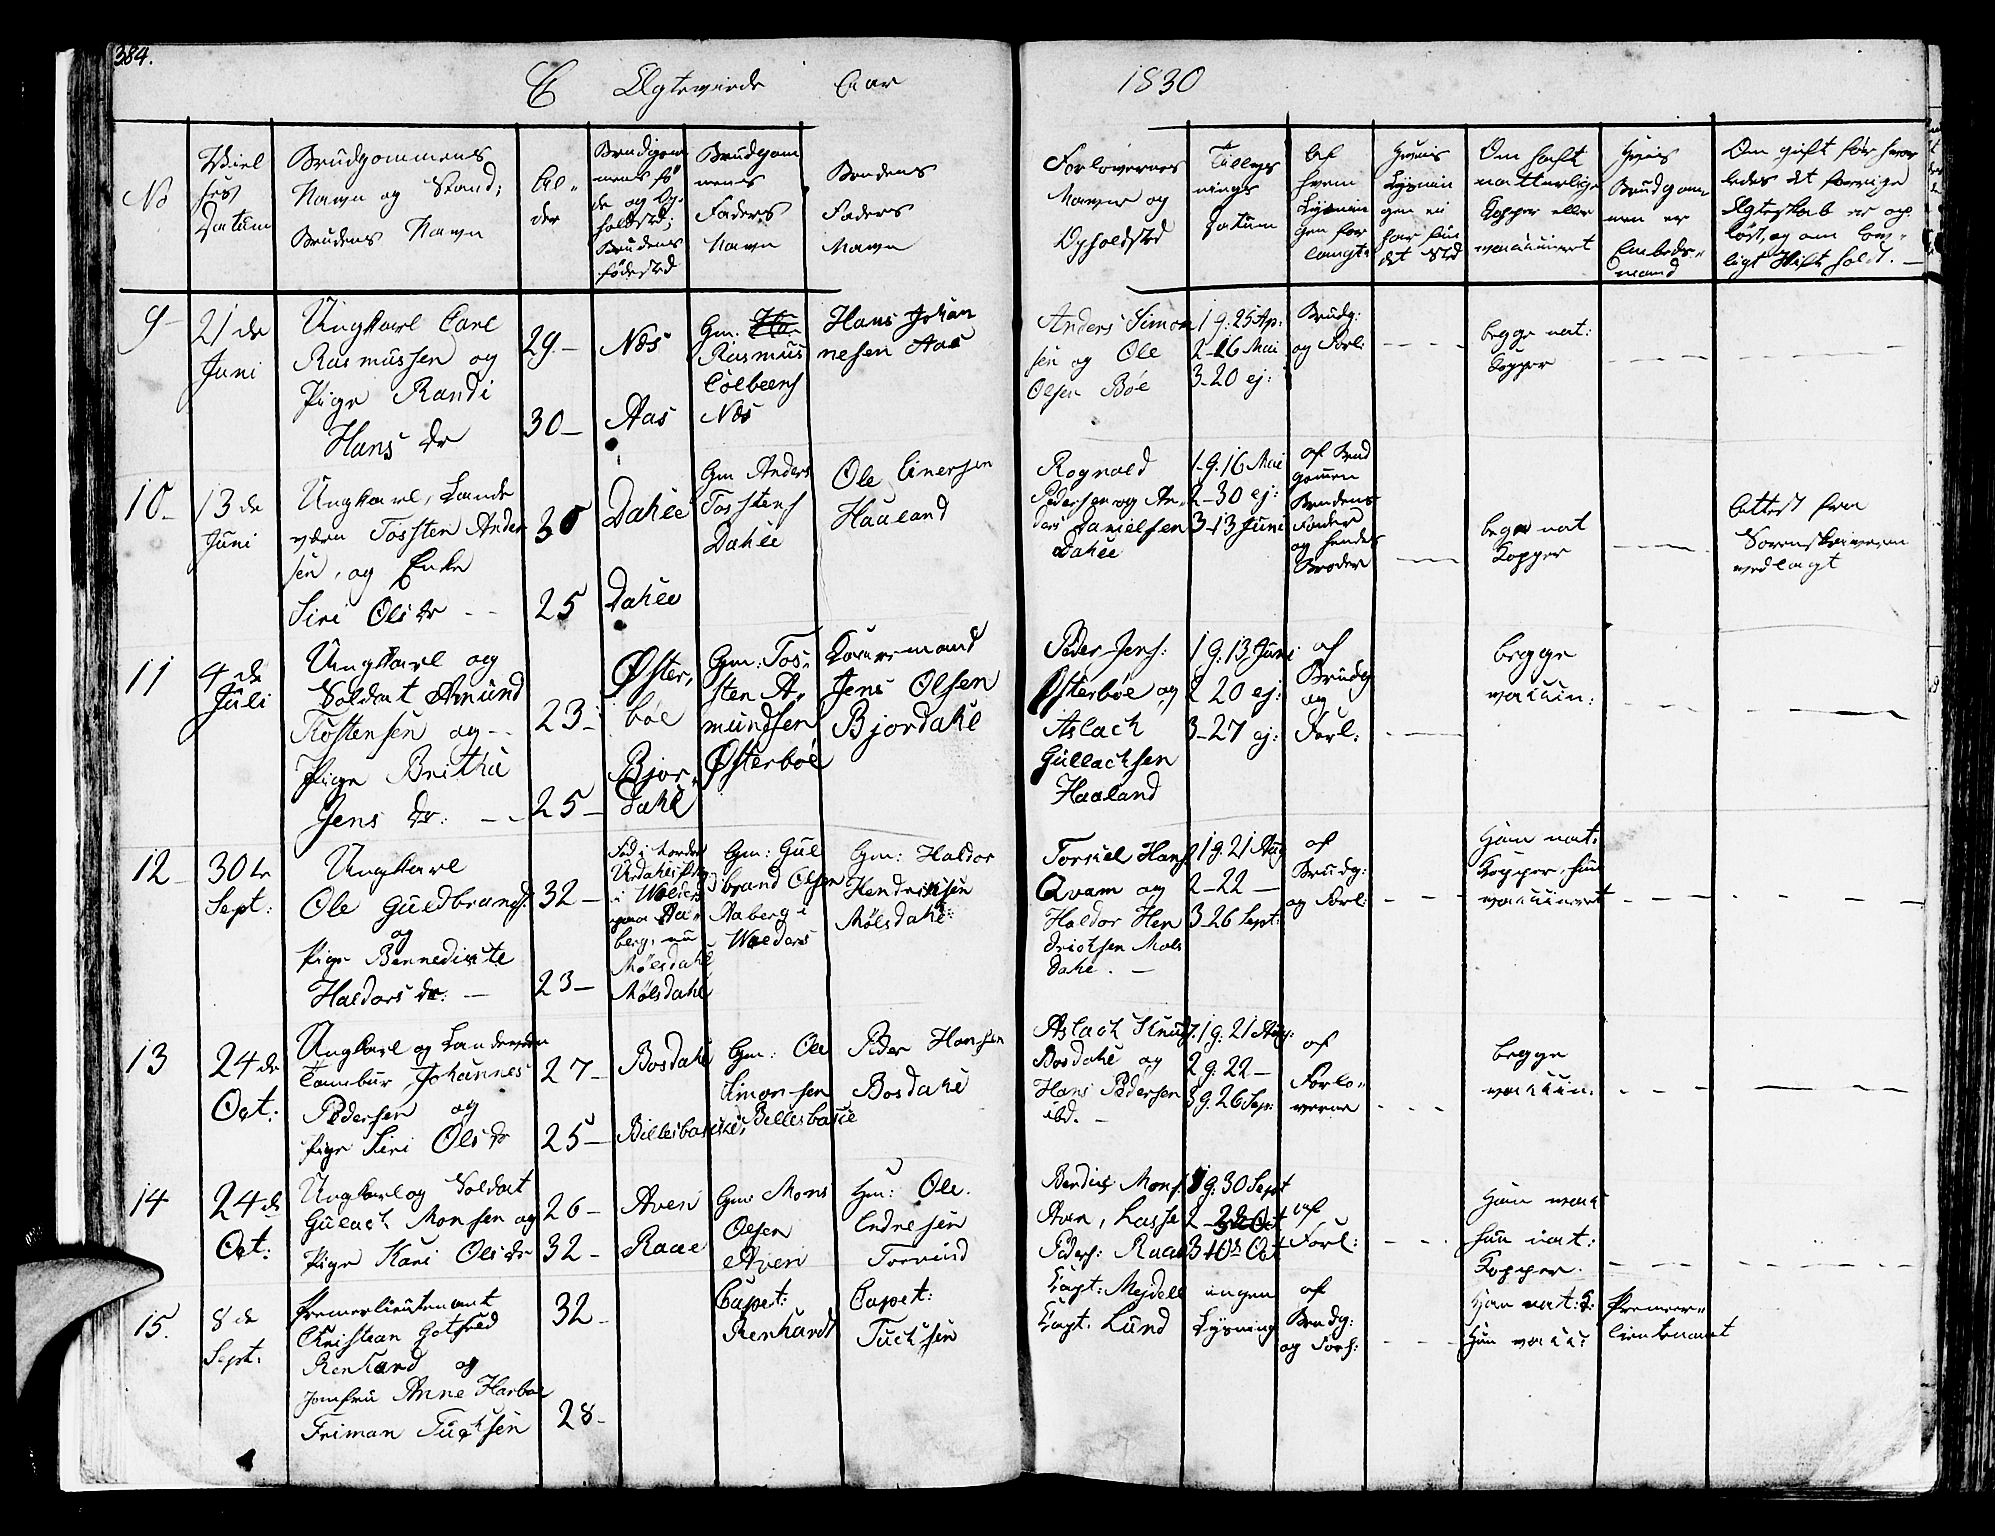 384.
C Ægteviede Aar 1830
No
Vielses Datum
Brudgommens Navn og Stand; Brudens Navn
Alder
Brudgommens føde og Opholdsted; Brudens fødested
Brudgommens Faders Navn
Brudens Faders Navn
Forlovernes Navne og Opholdsted
Tillysnings Datum
Af hvem Lysningen forlangt
Hvis Lysningen ei har fundet Sted
Om havt naturlige Kopper eller vaccineret
Hvis Brudgommen er Embedsmand
Om gift før, hvorledes det forrige Ægteskab er opløst, og om lovligt Skifte holdt.
9
21de
Juni
Ungkarl Carl
Rasmussen og
Pige Randi
Hans dr
29-
30-
Næs
Aas
Gm:
Rasmus
Colbeens
Næs
Hans Johan
nesen Aas
Anders Simon
sen og Ole
Olsen Bøe
1 g: 25 Ap:
2-16 Mai
3-20 ej:
Brudg:
og Forl:
begge nat:
Kopper
10-
13de
Juni
Ungkarl, Lande
værn Tosten Ander
sen, og Enke
Siri Ols dr
30
25
Dahle
Dahle
Gm Anders
Tostens
Dahle
Ole Einersen
Haaland
Rognald
Pedersen og An-
ders Danielsen
Dahle
1-g. 16 Mai
2-30 ej:
3-13 Juni
af Brud
gommen
Brudens
Fader
og hendes
Broder
begge nat
Kopper
Attest fra
Sorenskriveren
vedlagt
11
4de
Juli
Ungkarl og
Soldat Amund
Tostensen og
Pige Britha
Jens dr:
23-
25-
Øster,
bøe
Bjor,
dahl
Gm: Tos,
sten A,
mundsen
Østerbøe
Jens Olsen
Bjordahl
Peder Jens:
Østerbøe og
Aslach
Gullachsen
Haaland
1 g: 13 Juni
2 20 ej:
3-27 ej:
af
Brudg
og
Forl:
begge
vaccin:
12
30te
Sept:
Ungkarl
Ole Guldbrands
og
Pige Bennedicte
Haldors dr:
32-
23-
berg, nu
Mølsdahl
Mølsdahl
Gm: Gul
brand Olsen
Aaberg i
Walders
Gm: Haldor
Hendricksen
Mølsdahl:
Torkiel Hans
Qvam og
Haldor Hen
dricksen Møls
dahl.
1 g: 21 Aug
2-22
3-26 Sept:
af
Brudg:
og Forl:
Ham nat:
Kopper, hun
vaccineret
13
24de
Oct:
Ungkarl og Landeværn
Tambur Johannes
Pedersen og
Pige Siri Ols dr
27-
25-
Bosdahl
Gm: Ole
Simonsen
Peder Hansen
Bosdahl
Aslach Knuds.
Bosdahl og
Hans Pedersen
ibd.
1 g: 21 Aug:
2 g: 22-
3 g. 26 Sep:
af
Forlo,
verne
begge
vaccin:
14
24de
Oct:
Ungkarl og Soldat
Gulach Monsen og
Pige Kari Ols dr
26-
32-
Aven
Raae
Gm: Mons
Olsen
Aven
Gm: Ole
Endresen
Bendix Mons:
Aven, Lasse
Peders: Raae
1 g: 30 Sept
3 10de Oct
af
Forl:
Ham vacc
hun nat:
Kopper.
15.
8de
Sept:
Premierlieutenant
Christian Gotfred
Renhard og
Jomfru Anne Harboe
Friman Tuchsen
32
28-
Capet:
Renhardt
Capet:
Tuchsen
Capt: Mejdell
Capt. Lund
ingen
Lysning
af
Brudg:
og Forl:
Ham nat: K:
Hun vacc:
Premier-
lieutenant